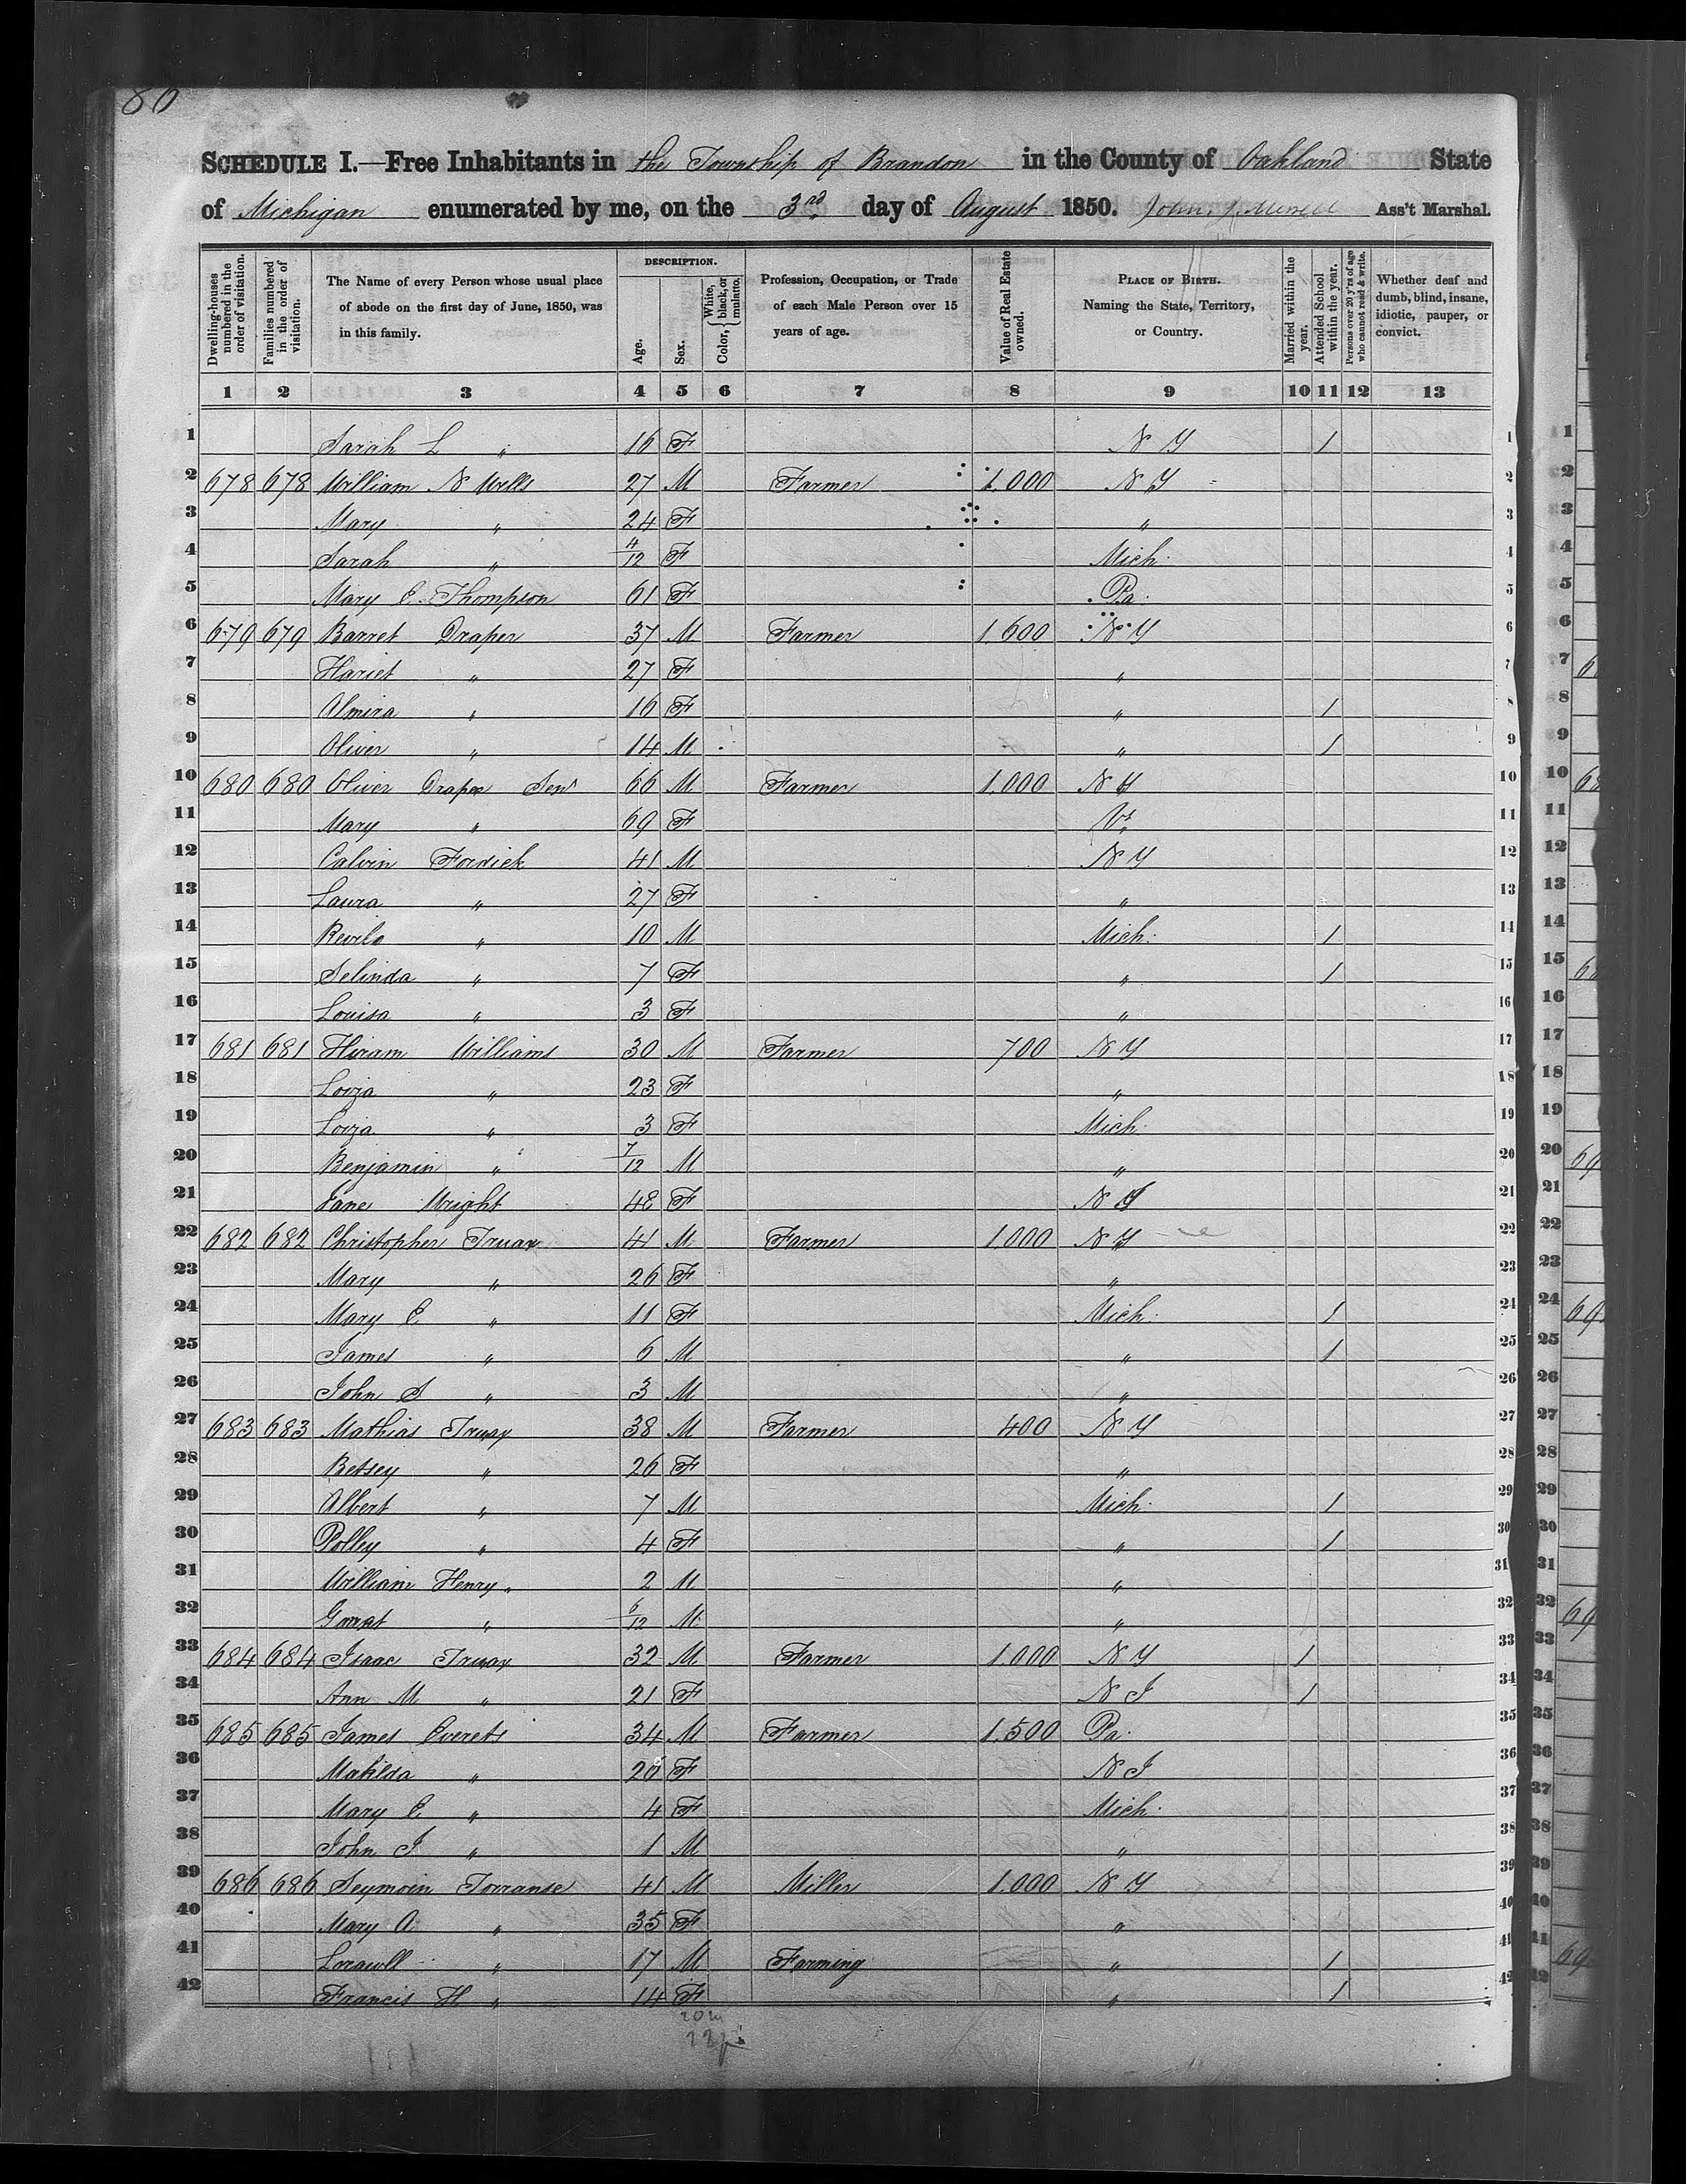 80
SCHEDULE I.—Free Inhabitants in the Township of Brandon in the County of Oakland State
of Michigan enumerated by me, on the 3rd day of August 1850. John Ass't Marshal.
Dwelling-houses numbered in the order of visitation.
Families numbered in the order of visitation.
The Name of every Person whose usual place of abode on the first day of June, 1850, was in this family.
DESCRIPTION.
Age.
Sex.
Color, { White, black, or mulatto.
Profession, Occupation, or Trade of each Male Person over 15 years of age.
Value of Real Estate owned.
PLACE OF BIRTH. Naming the State, Territory, or Country.
Married within the year.
Attended School within the year.
Persons over 20 y'rs of age who cannot read & write.
Whether deaf and dumb, blind, insane, idiotic, pauper, or convict.
1 2 3 4 5 6 7 8 9 10 11 12 13
1 Sarah L " 16 F N Y 1 1
2 678 678 William N Wells 27 M Farmer 1.000 N Y 2
3 Mary " 24 F " 3
4 Sarah " 4/12 F Mich. 4
5 Mary E. Thompson 61 F Pa. 5
6 679 679 Barret Draper 37 M Farmer 1600 N Y 6
7 Hariet " 27 F " 7
8 Almira " 16 F " 1 8
9 Oliver " 14 M " 1 9
10 680 680 Oliver Draper Senr 66 M Farmer 1.000 N H 10
11 Mary " 69 F Vt 11
12 Calvin Fordick 41 M N Y 12
13 Laura " 27 F " 13
14 Revilo " 10 M Mich. 1 14
15 Selinda " 7 F " 1 15
16 Louisa " 3 F " 16
17 681 681 Hiram Williams 30 M Farmer 700 N Y 17
18 Loiza " 23 F " 18
19 Loiza " 3 F Mich. 19
20 Benjamin " 7/12 M " 20
21 Jane Wright 48 F N Y 21
22 682 682 Christopher Truax 41 M Farmer 1.000 N Y 22
23 Mary " 26 F " 23
24 Mary E " 11 F Mich. 1 24
25 James " 6 M " 1 25
26 John S " 3 M " 26
27 683 683 Mathias Truax 38 M Farmer 400 N Y 27
28 Betsey " 26 F " 28
29 Albert " 7 M Mich. 1 29
30 Polley " 4 F " 1 30
31 William Henry " 2 M " 31
32 " 6/12 M " 32
33 684 684 Isaac Truax 32 M Farmer 1.000 N Y 1 33
34 Ann M " 21 F N J 1 34
35 685 685 James Everets 34 M Farmer 1.500 Pa. 35
36 Matilda " 26 F N J 36
37 Mary E " 4 F Mich. 37
38 John J " 1 M " 38
39 686 686 Seymoin Torranse 41 M Miller 1.000 N Y 39
40 Mary A " 35 F " 40
41 " 17 M Farming " 1 41
42 Francis H " 14 F " 1 42
20 m